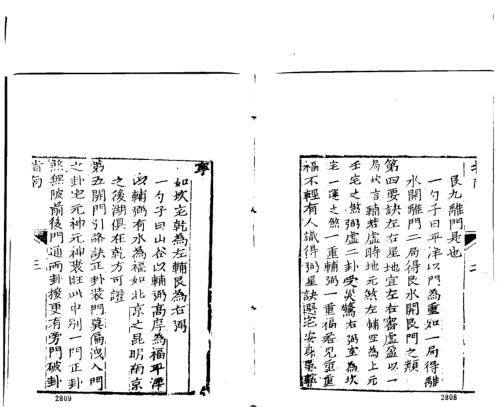 艮九離門是也
一勺子曰平洋以門為重如一局得離
水開離門二局得艮水開艮門之類
第四要訣左右星地宜左右審虛盈以一
局坎言輔若虛時地元煞左輔空為上元
壬宅之煞弼虛二卦受災驚右弼空為坎
宅一運之煞一重輔弼一重福若見重重
福不輕有人識得弼星訣選宅安身
如坎宅乾為左輔艮為右弼
一勺子曰山谷以輔弼高厚為福平洋
以輔弼有水為福如北京之昆明南京
之後湖俱在乾方可證
第五開門引路訣正卦裝門莫偏洩入門
之卦宅元神元神衰旺此中別一門正卦
煞無破前後門通兩卦接更有旁門破卦
指南
三
二
2809
2808